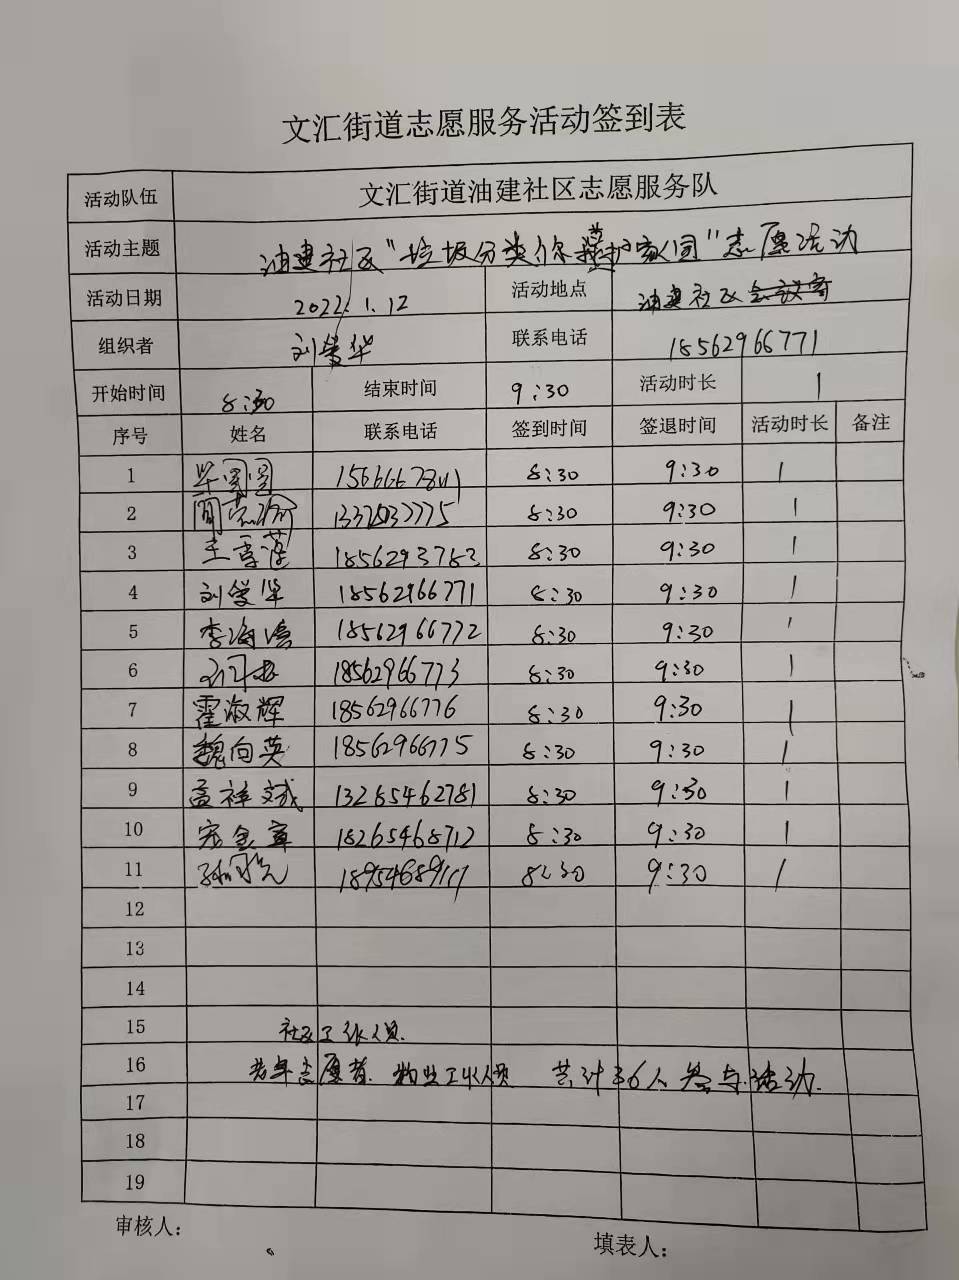 文汇街道志愿服务活动签到表
活动队伍 文汇街道油建社区志愿服务队
活动主题 油建社区"垃圾分类 护家园"志愿活动
活动日期 2022.1.12 活动地点 油建社区
组织者 刘爱华 联系电话 18562966771
开始时间 8:30 结束时间 9:30 活动时长 1
序号 姓名 联系电话 签到时间 签退时间 活动时长 备注
1 8:30 9:30 1
2 8:30 9:30 1
3 王雪莲 18562993783 8:30 9:30 1
4 刘爱华 18562966771 8:30 9:30 1
5 李海涛 18562966772 8:30 9:30 1
6 18562966773 8:30 9:30 1
7 霍淑辉 18562966776 8:30 9:30 1
8 魏向英 18562966775 8:30 9:30 1
9 孟祥斌 13285462781 8:30 9:30 1
10 宋金章 18265468712 8:30 9:30 1
11 8:30 9:30 1
12
13
14
15 社区工作人员
16 志愿者 物业工作人员 共计36人参与活动.
17
18
19
审核人: 填表人: